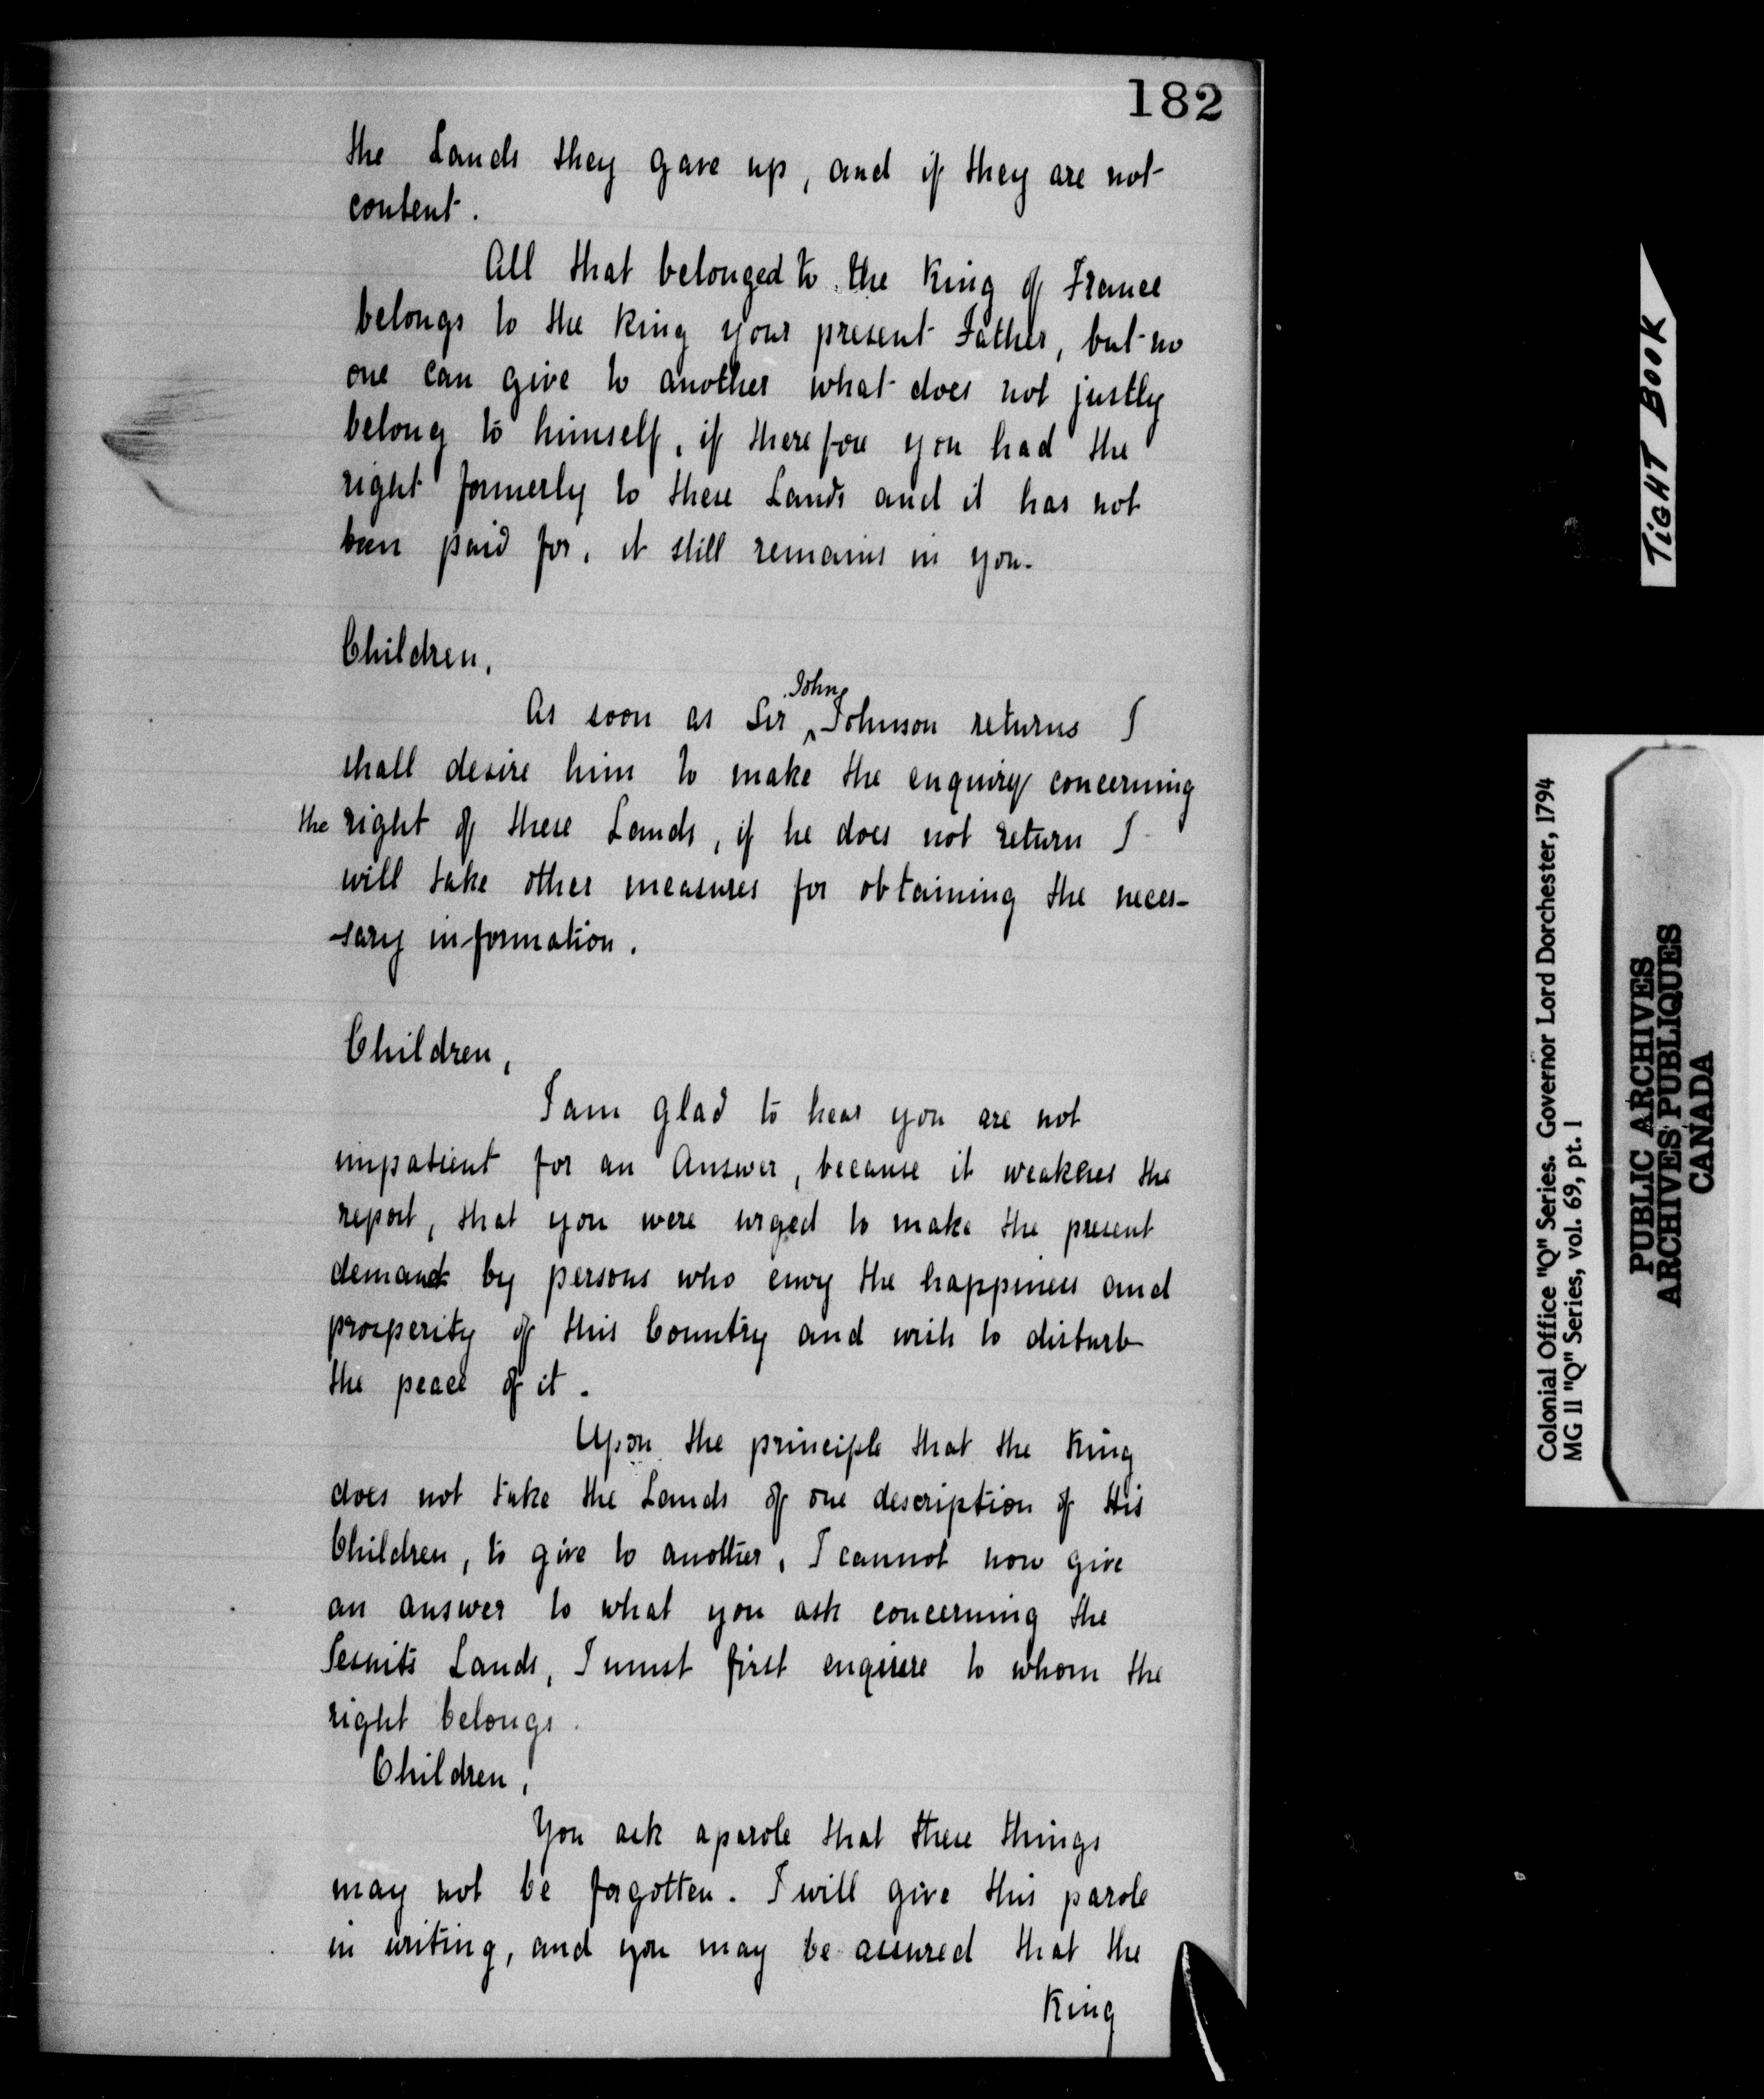 182
the Lands they gave up, and if they are not
content.
All that belonged to the King of France
belongs to the King your present Father, but no
one can give to another what does not justly
belong to himself, if therefore you had the
right formerly to these Lands and it has not
been paid for, it still remains in you.
Children,
As soon as Sir ‸John Johnson returns I
shall desire him to make the enquiry concerning
the right of these Lands, if he does not return I
will take other measures for obtaining the neces-
-sary information.
Children,
I am glad to hear you are not
impatient for an Answer, because it weakens the
report, that you were urged to make the present
demand by persons who envy the happiness and
prosperity of this Country and wish to disturb
the peace of it.
Upon the principle that the King
does not take the Lands of one description of His
Children, to give to another, I cannot now give
an answer to what you ask concerning the
Jesuits Lands, I must first enquire to whom the
right belongs.
Children,
You ask a parole that these things
may not be forgotten. I will give this parole
in writing, and you may be assured that the
King
TIGHT BOOK
Colonial Office "Q" Series. Governor Lord Dorchester, 1794
MG 11 "Q" Series, vol. 69, pt. 1
PUBLIC ARCHIVES
ARCHIVES PUBLIQUES
CANADA